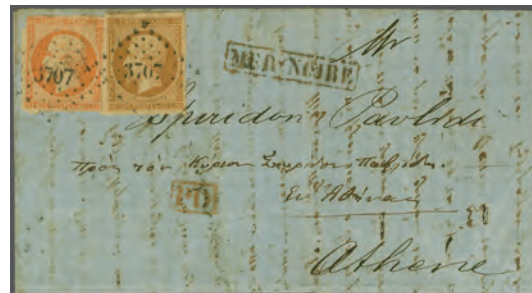 3707 3707
MER-NOIRE
Mr
Spiridon Pavlidi
Πρὸς τὸν Κύριον Σπυρίδωνα Παυλίδην.
PD
Εἰς Ἀθήνας
Athène